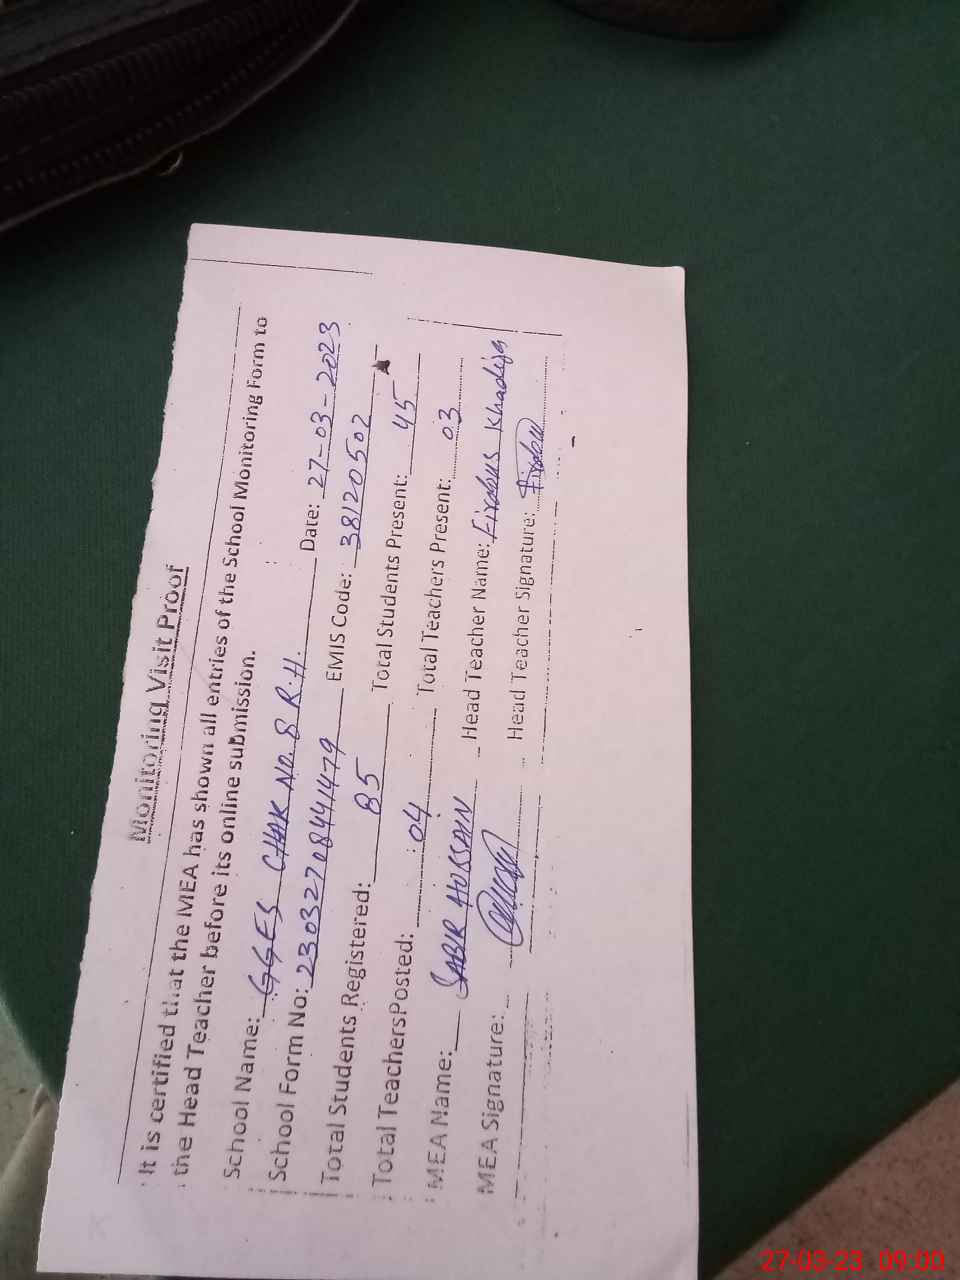 Monitoring Visit Proof
It is certified that the MEA has shown all entries of the School Monitoring Form to
the Head Teacher before its online submission.
School Name: GGES CHAK NO. 8 R.H. Date: 27-03-2023
School Form No: 23032708441479 EMIS Code: 38120502
Total Students Registered: 85 Total Students Present: 45
Total Teachers Posted: 04 Total Teachers Present: 03
MEA Name: SABIR HUSSAIN Head Teacher Name: Firdous Khadija
MEA Signature: Head Teacher Signature: Firdous
27-03-23 09:00